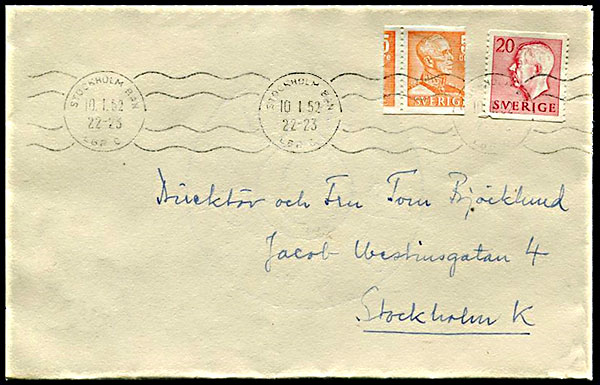 STOCKHOLM BAN
10.1.52
22-23
LBR C
STOCKHOLM BAN
10.1.52
22-23
LBR C
5
SVERIGE
20
SVERIGE
Direktör och Fru Tom Björklund
Jacob Westinsgatan 4
Stockholm K